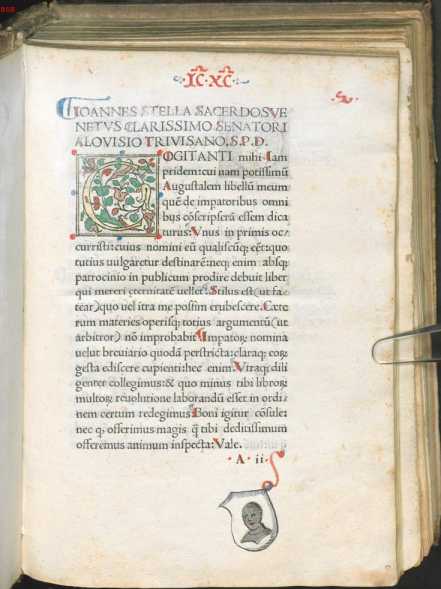 IC· XC·
IOANNES STELLA SACERDOS VE
NETVS CLARISSIMO SENATORI
ALOVISIO TRIVISANO. S. P. D.
COGITANTI mihi Iam
pridem: cui nam potissimū
Augustalem libellū meum
quē de imparatoribus omni
bus cōscripserā essem dica
turus: Vnus in primis oc⸗
curristi: cuius nomini eū qualiscūq; eēt: quo
tutius uulgaretur destinarē: neq; enim absq;
patrocinio in publicum prodire debuit liber
qui mereri eternitatē uellet. Stilus est (ut fa⸗
tear) quo uel itra me possim erubescere. Cæte
rum materies operisq; totius argumentū (ut
arbitror) nō improbabit. Impator⸝ nomina
uelut breuiario quodā perstricta: claraq; eor⸝
gesta ediscere cupienti: hec enim Vtraq; dili
genter collegimus: & quo minus tibi libror⸝
multor⸝ reuolutione laborandū esset in ordi⸗
nem certum redegimus. Boni igitur cōsule:
nec q; offerimus magis q̄ tibi deditissimum
offeremus animum inspecta: Vale.
A ii